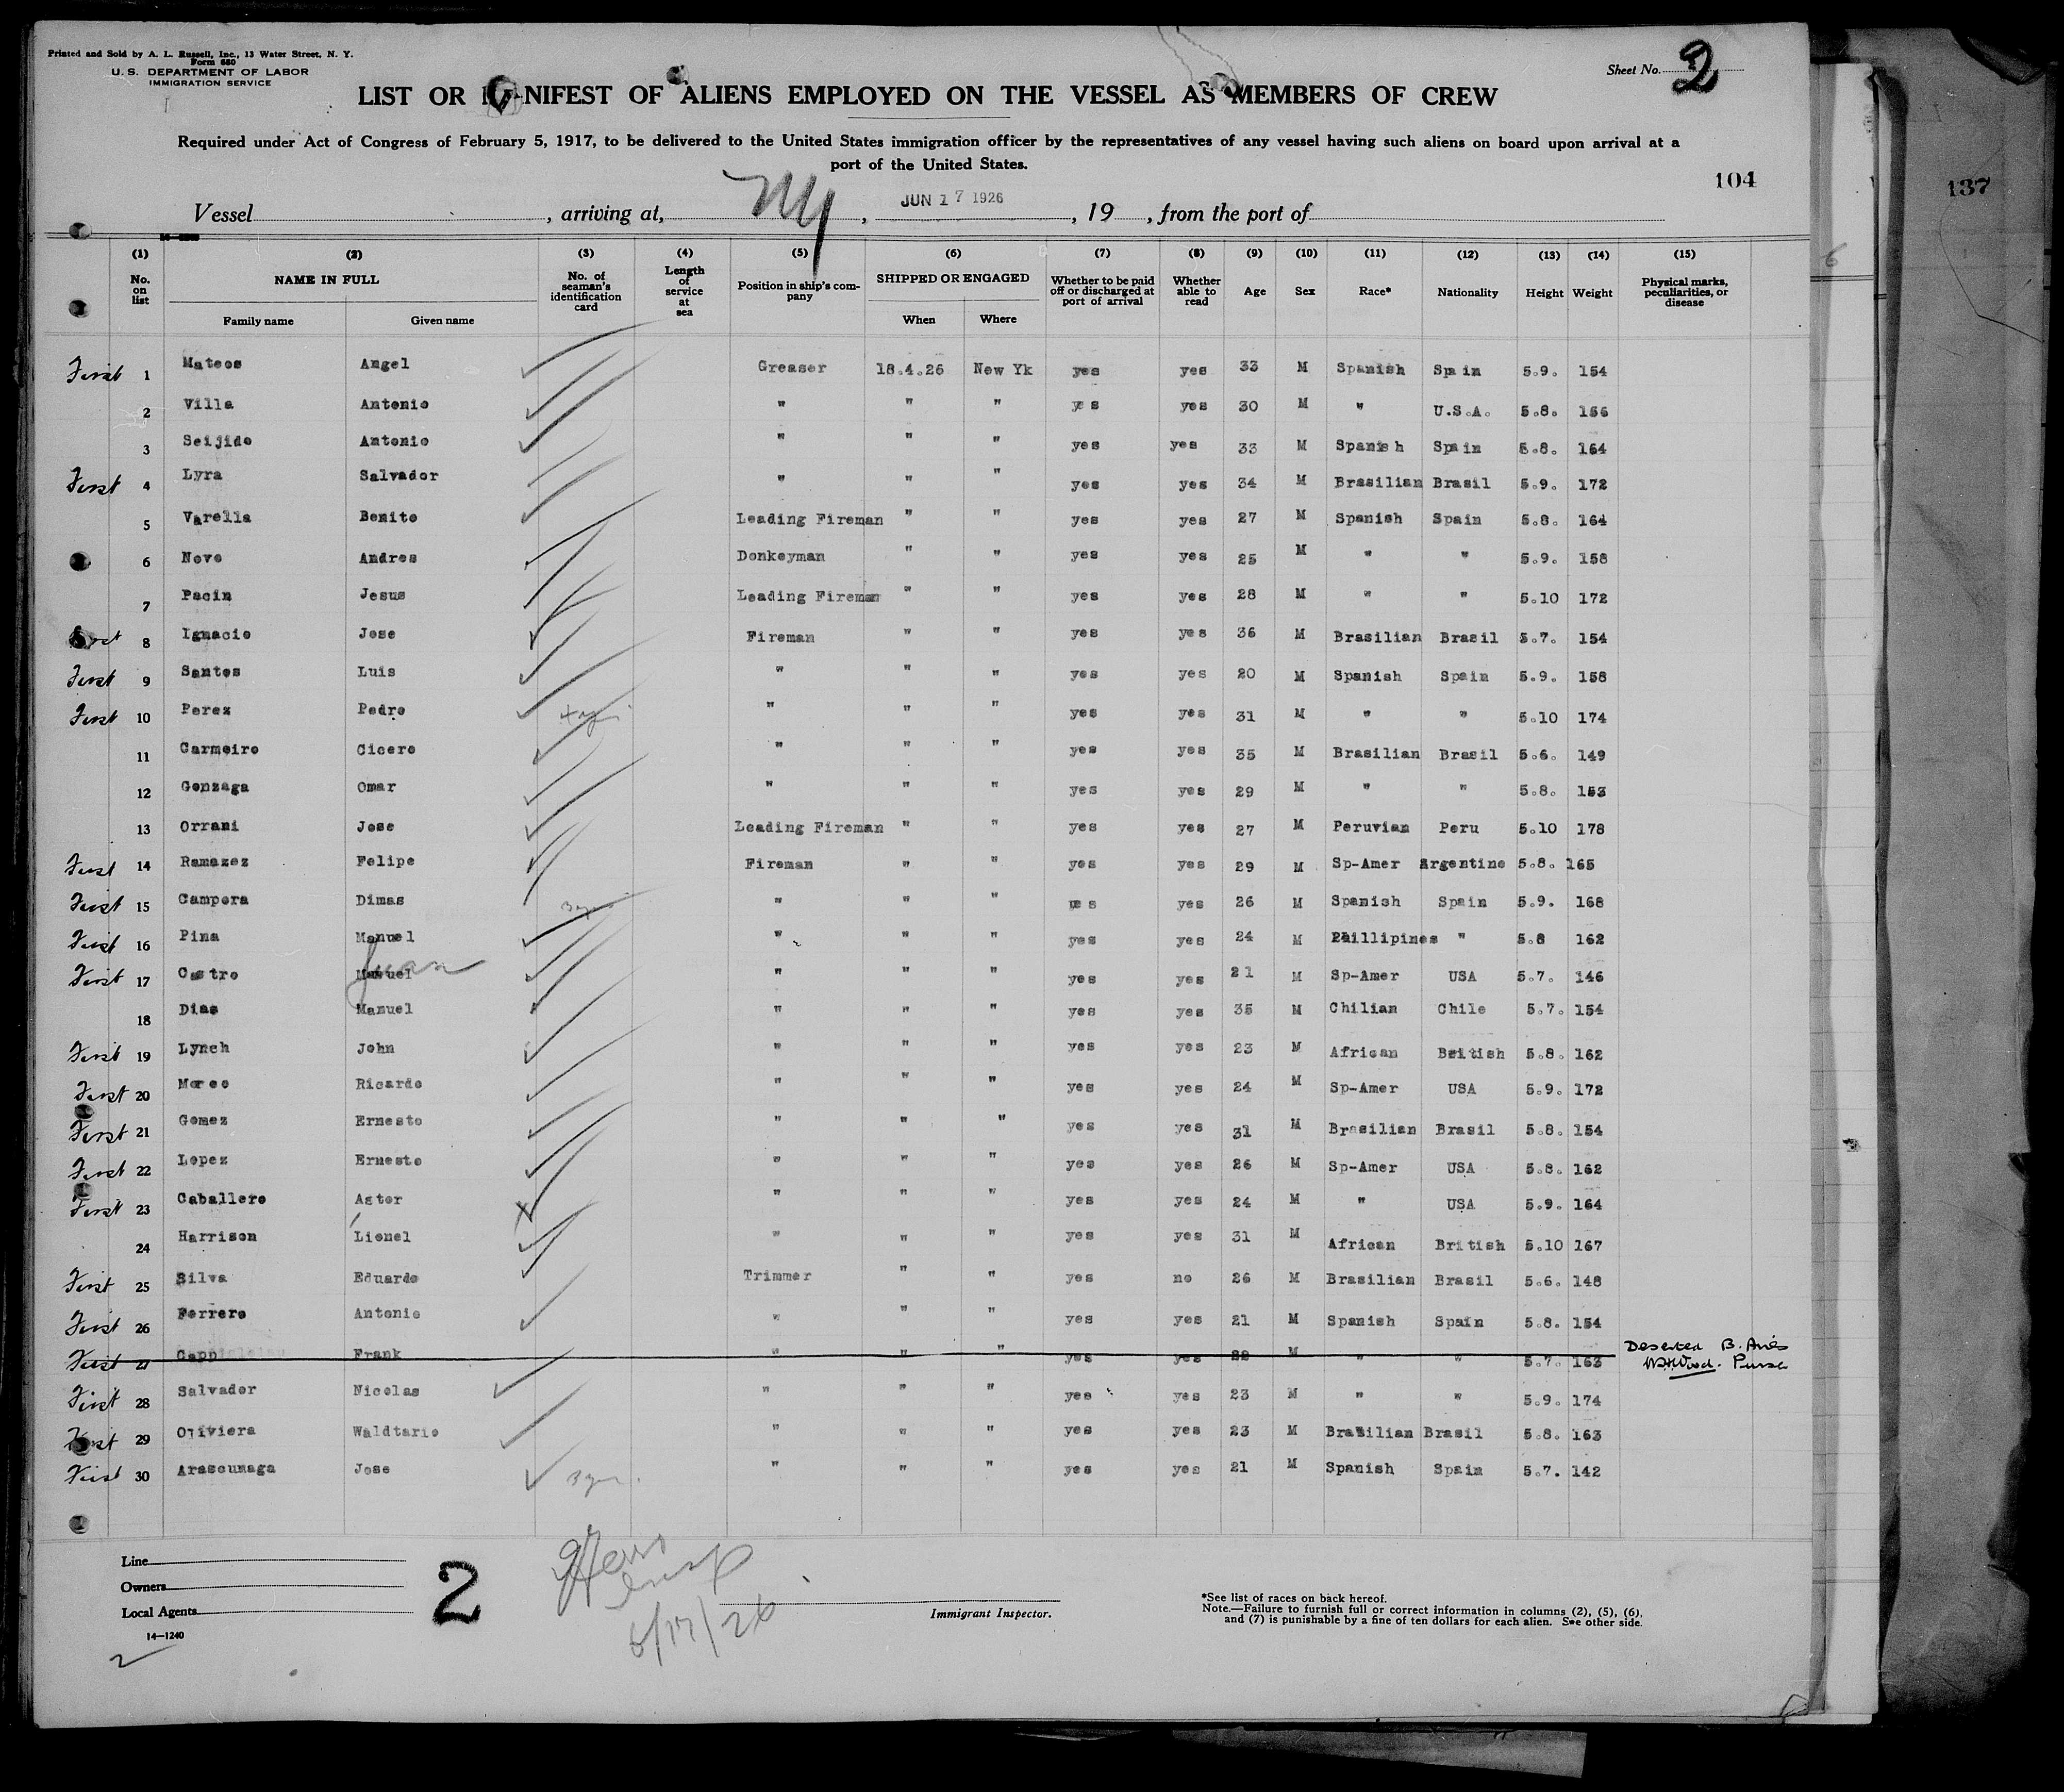 Printed and Sold by A. L. Russell, Inc., 13 Water Street, N. Y.
Form 680
U. S. DEPARTMENT OF LABOR
IMMIGRATION SERVICE
Sheet No. 2
LIST OR MANIFEST OF ALIENS EMPLOYED ON THE VESSEL AS MEMBERS OF CREW
Required under Act of Congress of February 5, 1917, to be delivered to the United States immigration officer by the representatives of any vessel having such aliens on board upon arrival at a
port of the United States.
104
137
Vessel, arriving at, NY, JUN 17 1926, 19, from the port of
(1) (2) (3) (4) (5) (6) (7) (8) (9) (10) (11) (12) (13) (14) (15)
No. on list NAME IN FULL Family name Given name No. of seaman's identification card Length of service at sea Position in ship's company SHIPPED OR ENGAGED When Where Whether to be paid off or discharged at port of arrival Whether able to read Age Sex Race* Nationality Height Weight Physical marks, peculiarities, or disease
First 1 Mateos Angel Greaser 18.4.26 New Yk yes yes 33 M Spanish Spain 5.9. 154
2 Villa Antonio " " " yes yes 30 M " U.S.A. 5.8. 156
3 Seijido Antonio " " " yes yes 33 M Spanish Spain 5.8. 164
First 4 Lyra Salvador " " " yes yes 34 M Brasilian Brasil 5.9. 172
5 Varella Benito Leading Fireman " " yes yes 27 M Spanish Spain 5.8. 164
6 Novo Andres Donkeyman " " yes yes 25 M " " 5.9. 158
7 Pacin Jesus Leading Fireman " " yes yes 28 M " " 5.10 172
First 8 Ignacio Jose Fireman " " yes yes 36 M Brasilian Brasil 5.7. 154
First 9 Santos Luis " " " yes yes 20 M Spanish Spain 5.9. 158
First 10 Perez Pedro " " " yes yes 31 M " " 5.10 174
11 Carmeiro Cicero " " " yes yes 35 M Brasilian Brasil 5.6. 149
12 Gonzaga Omar " " " yes yes 29 M " " 5.8. 153
13 Orrani Jose Leading Fireman " " yes yes 27 M Peruvian Peru 5.10 178
First 14 Ramazez Felipe Fireman " " yes yes 29 M Sp-Amer Argentine 5.8. 165
First 15 Campora Dimas " " " yes yes 26 M Spanish Spain 5.9. 168
First 16 Pina Manuel " " " yes yes 24 M Phillipines " 5.8 162
First 17 Castro Manuel Juan " " " yes yes 21 M Sp-Amer USA 5.7. 146
18 Dias Manuel " " " yes yes 35 M Chilian Chile 5.7. 154
First 19 Lynch John " " " yes yes 23 M African British 5.8. 162
First 20 Moreo Ricardo " " " yes yes 24 M Sp-Amer USA 5.9. 172
First 21 Gomez Ernesto " " " yes yes 31 M Brasilian Brasil 5.8. 154
First 22 Lopez Ernesto " " " yes yes 26 M Sp-Amer USA 5.8. 162
First 23 Caballero Astor " " " yes yes 24 M " USA 5.9. 164
24 Harrison Lionel " " " yes yes 31 M African British 5.10 167
First 25 Silva Eduardo Trimmer " " yes no 26 M Brasilian Brasil 5.6. 148
First 26 Ferrero Antonio " " " yes yes 21 M Spanish Spain 5.8. 154
First 27 Frank " " " yes yes 22 M " " 5.7. 163 Deserted B. Aires Purser
First 28 Salvador Nicolas " " " yes yes 23 M " " 5.9. 174
First 29 Oliviera Waldtario " " " yes yes 23 M Brasilian Brasil 5.8. 163
First 30 Arascunaga Jose " " " yes yes 21 M Spanish Spain 5.7. 142
Line
Owners
Local Agents
14—1240
2
6/17/26
Immigrant Inspector.
*See list of races on back hereof.
Note.—Failure to furnish full or correct information in columns (2), (5), (6),
and (7) is punishable by a fine of ten dollars for each alien. See other side.